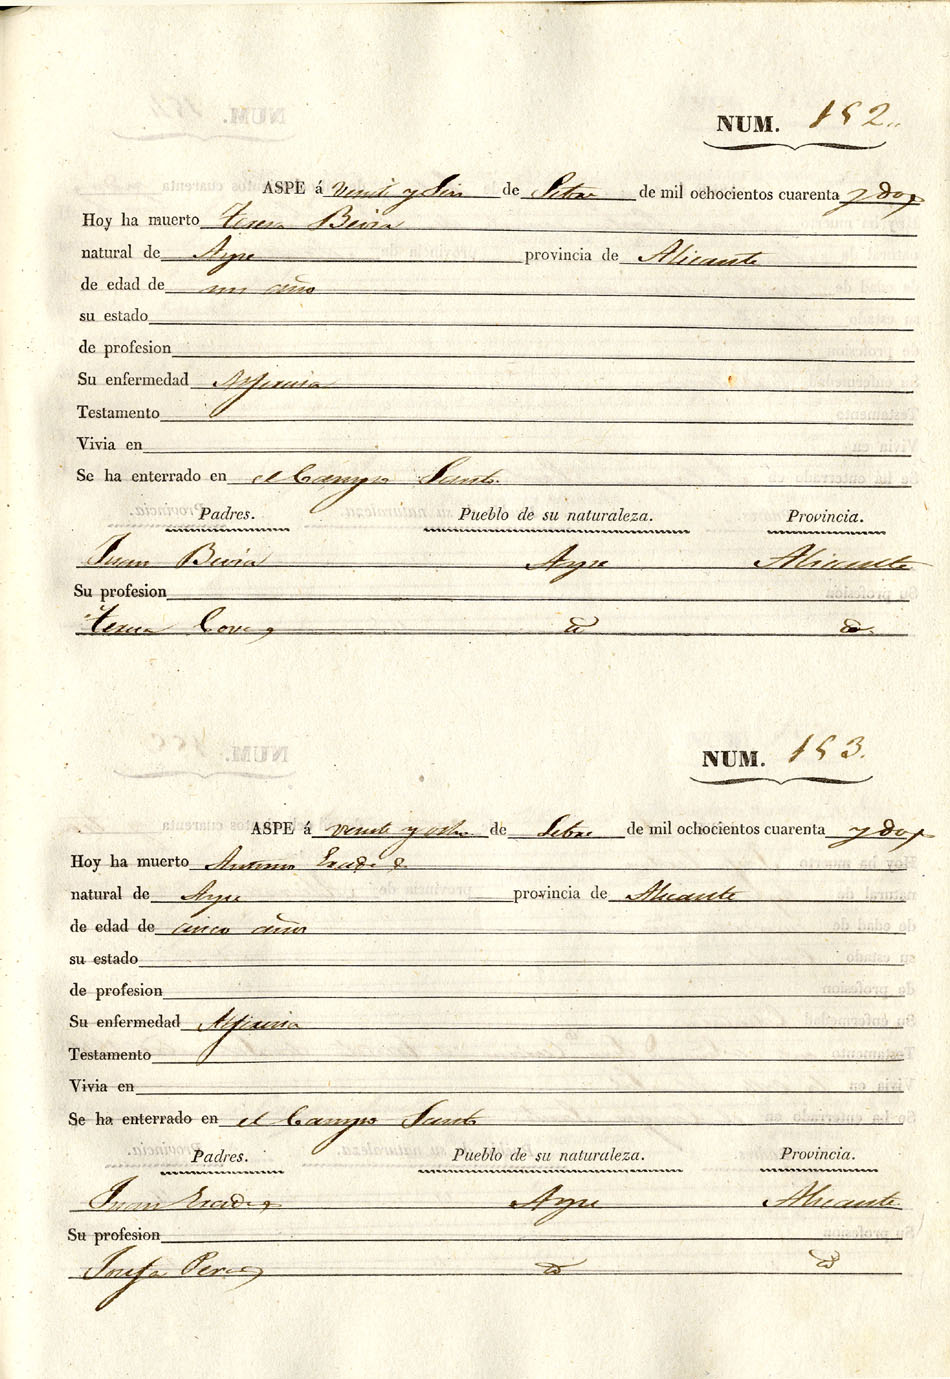 NUM. 152..
ASPE á veinte y seis de Setre de mil ochocientos cuarenta y dos
Hoy ha muerto teresa Bevia
natural de Aspe provincia de Alicante
de edad de un año
su estado
de profesion
Su enfermedad Alferecia
Testamento
Vivia en
Se ha enterrado en el Campo Santo
Padres. Pueblo de su naturaleza. Provincia.
Juan Bevia Aspe Alicante
Su profesion
teresa
NUM. 153.
ASPE á veinte y ocho de Setre de mil ochocientos cuarenta y dos
Hoy ha muerto Antonio
natural de Aspe provincia de Alicante
de edad de cinco años
su estado
de profesion
Su enfermedad Alferecia
Testamento
Vivia en
Se ha enterrado en el Campo Santo
Padres. Pueblo de su naturaleza. Provincia.
Juan Aspe Alicante
Su profesion
Josefa Perez